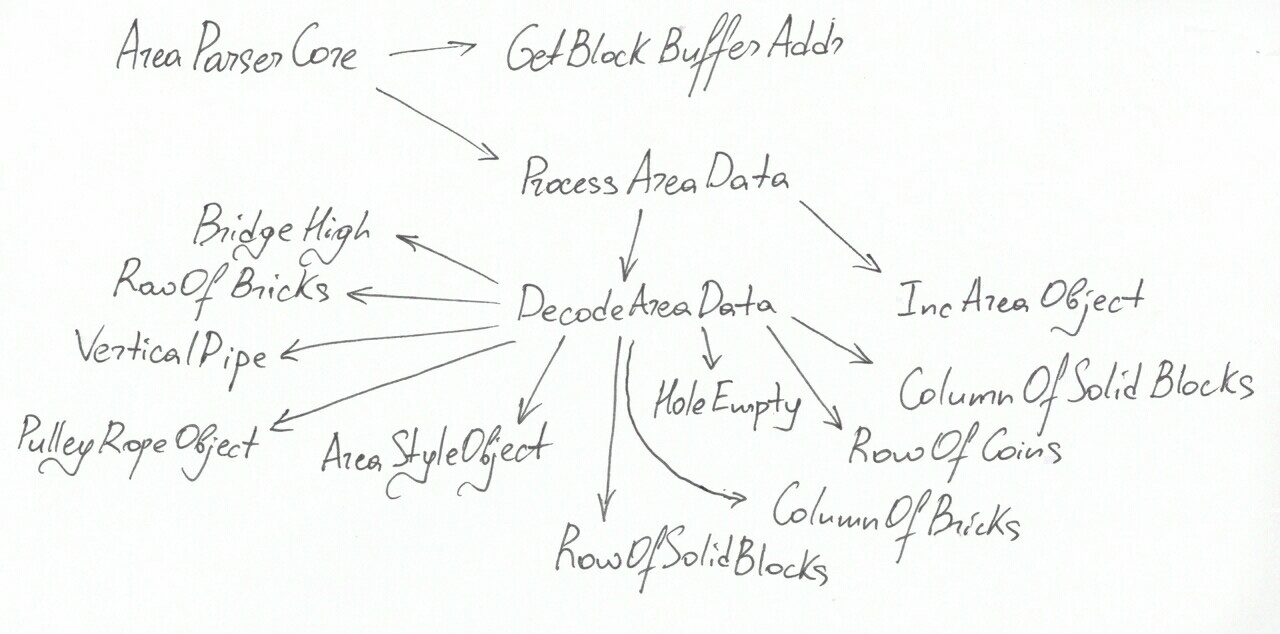 AreaParserCore
GetBlockBufferAddr
ProcessAreaData
BridgeHigh
RowOfBricks
DecodeAreaData
IncAreaObject
VerticalPipe
HoleEmpty
ColumnOfSolidBlocks
PulleyRopeObject
AreaStyleObject
RowOfCoins
ColumnOfBricks
RowOfSolidBlocks